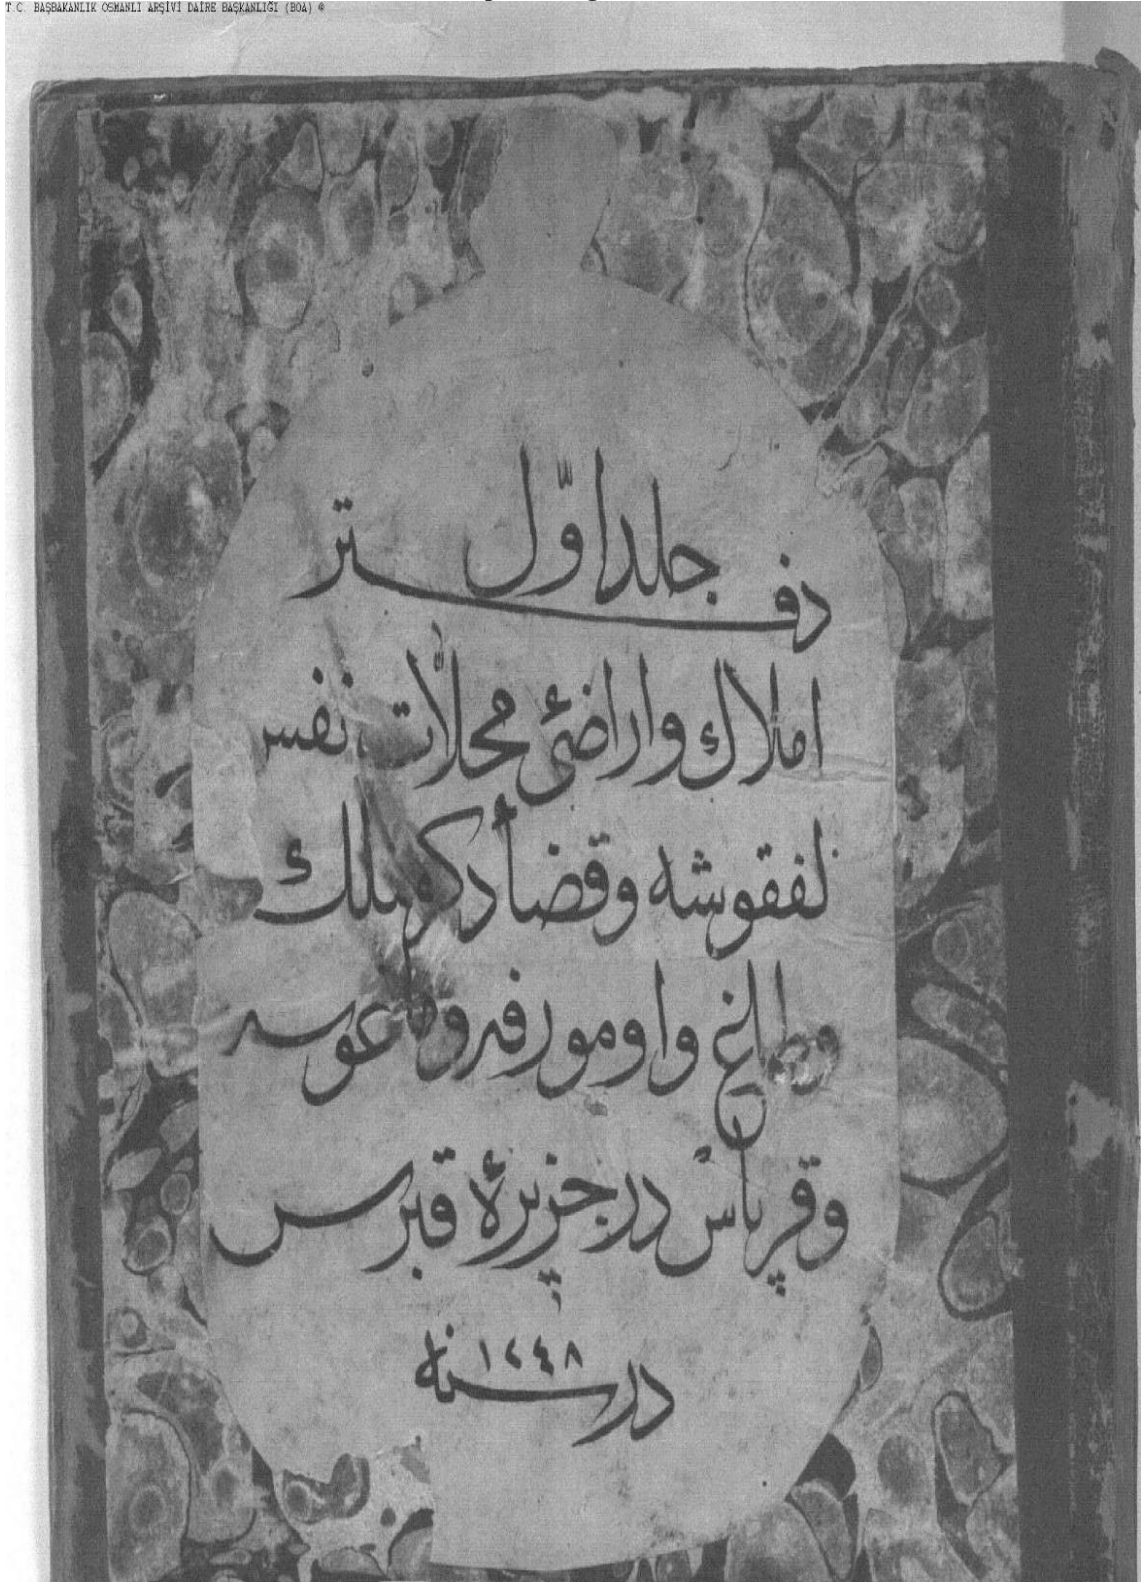 T.C. BAŞBAKANLIK OSMANLI ARŞİVİ DAİRE BAŞKANLIĞI (BOA) ©
جلد اوّل
دفتر
املاك واراضئ محلاّت نفس
لفقوشه وقضأ دكرمنلك
وطاغ واومورفه وماغوسه
وقرپاس در جزيرۀ قبرس
در سنه ١٢٤٨